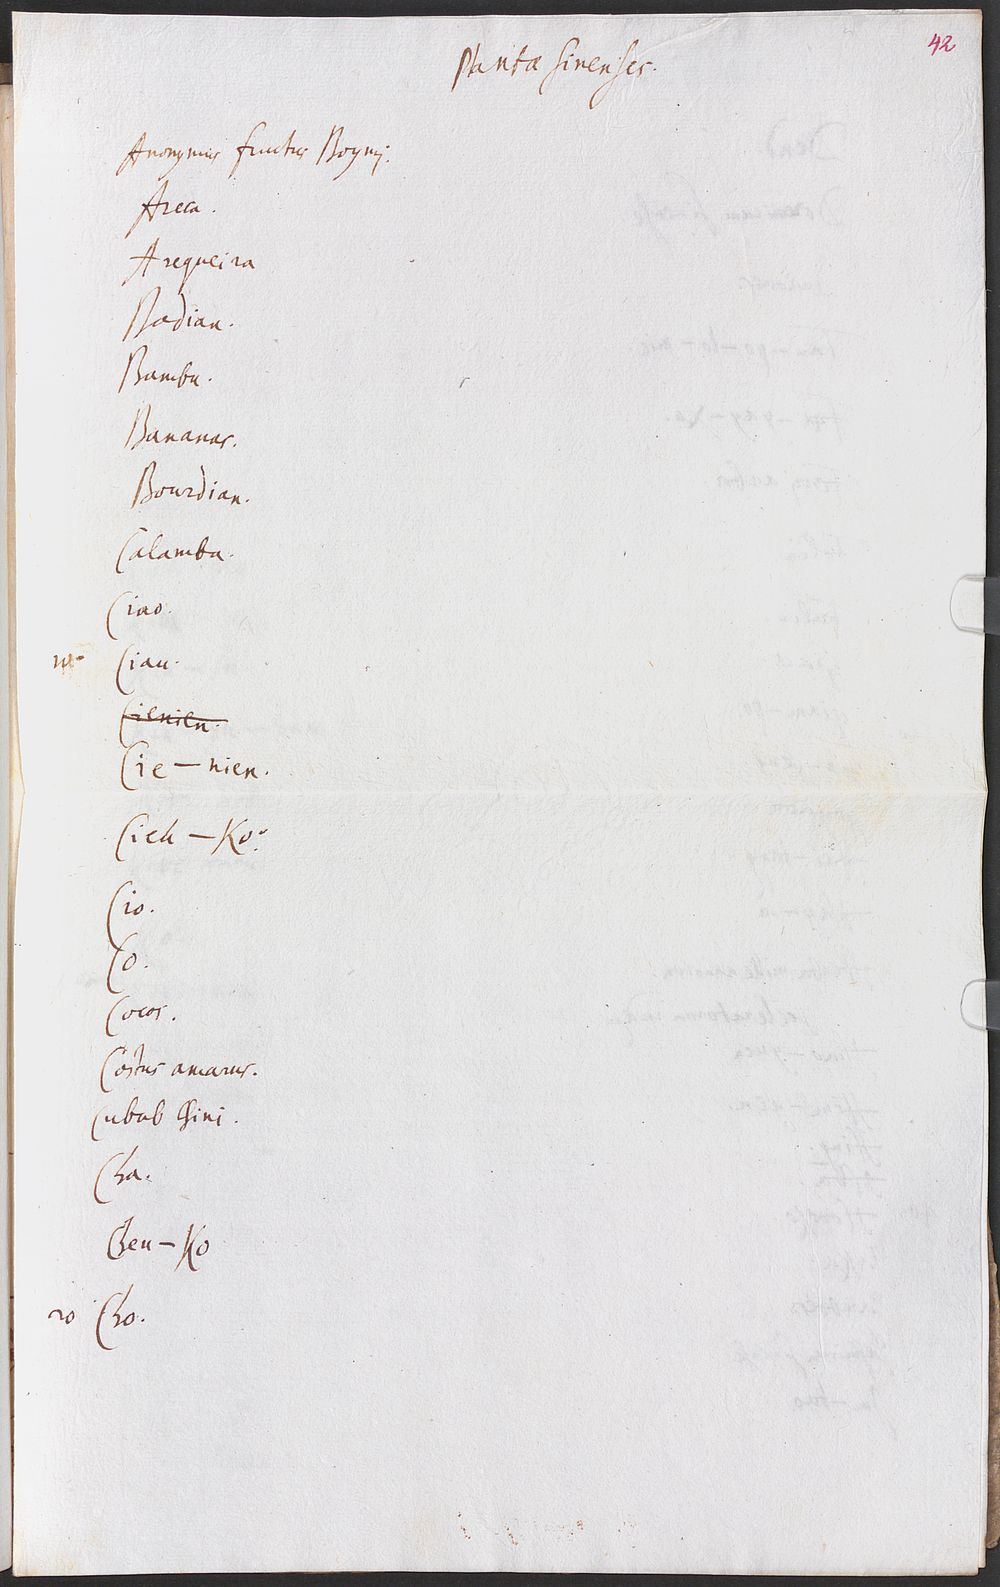 42
Plantæ sinenses.
Anonymus fructus Boymj.
Areca.
Arequeira
Badian.
Bambu.
Bananas.
Bourdian.
Calamba.
Ciao.
10 Ciau.
Cienien.
Cie - nien.
Cieh - Ko.
Cio.
Co.
Cocos.
Costus amarus.
Cubab Chini.
Cha.
Cheu - Ko
20 Cho.